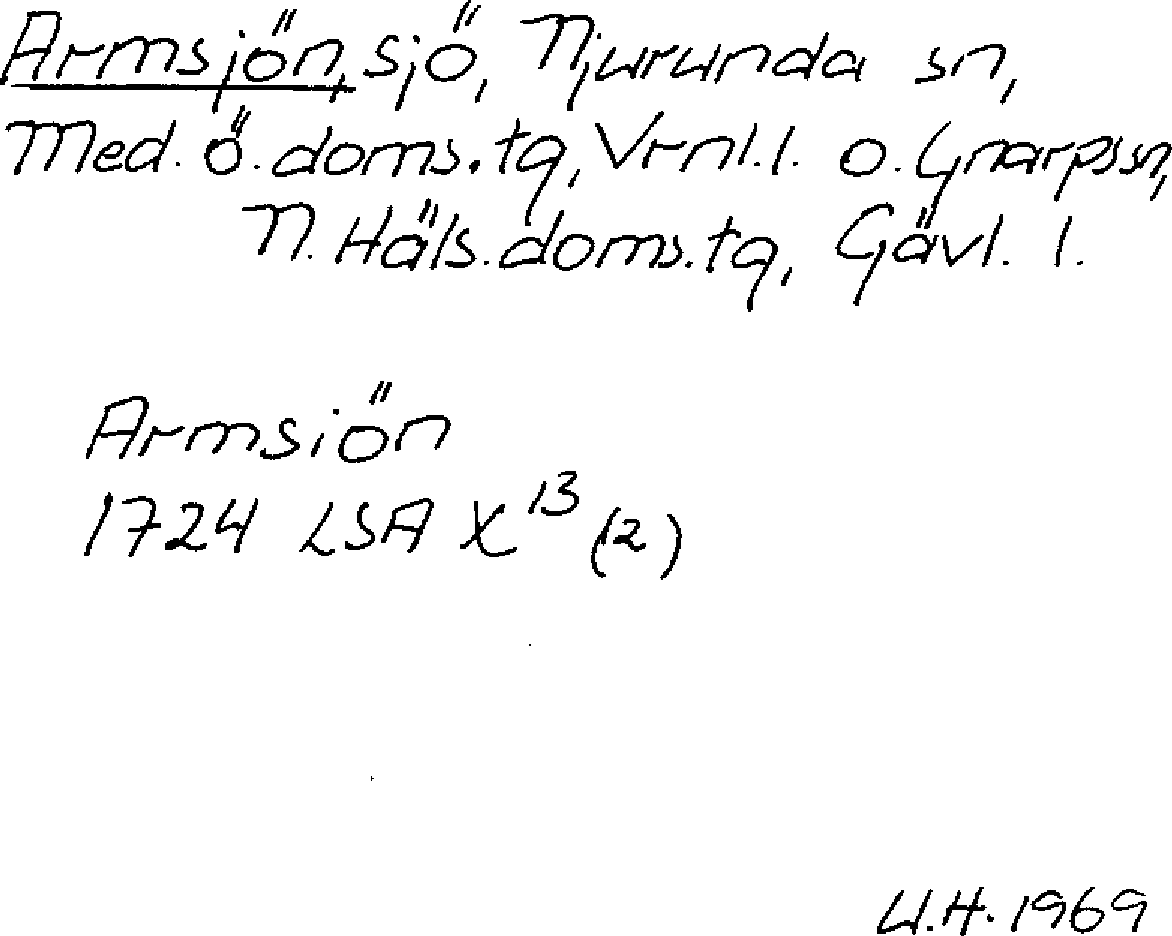 Armsjön, sjö, Njurunda sn,
Med. Ö. doms.tg, Vrnl.l. o. Gnarps sn,
N. Häls. doms.tg, Gävl. l.
Armsiön
1724 LSA X 13 (2)
U.H. 1969